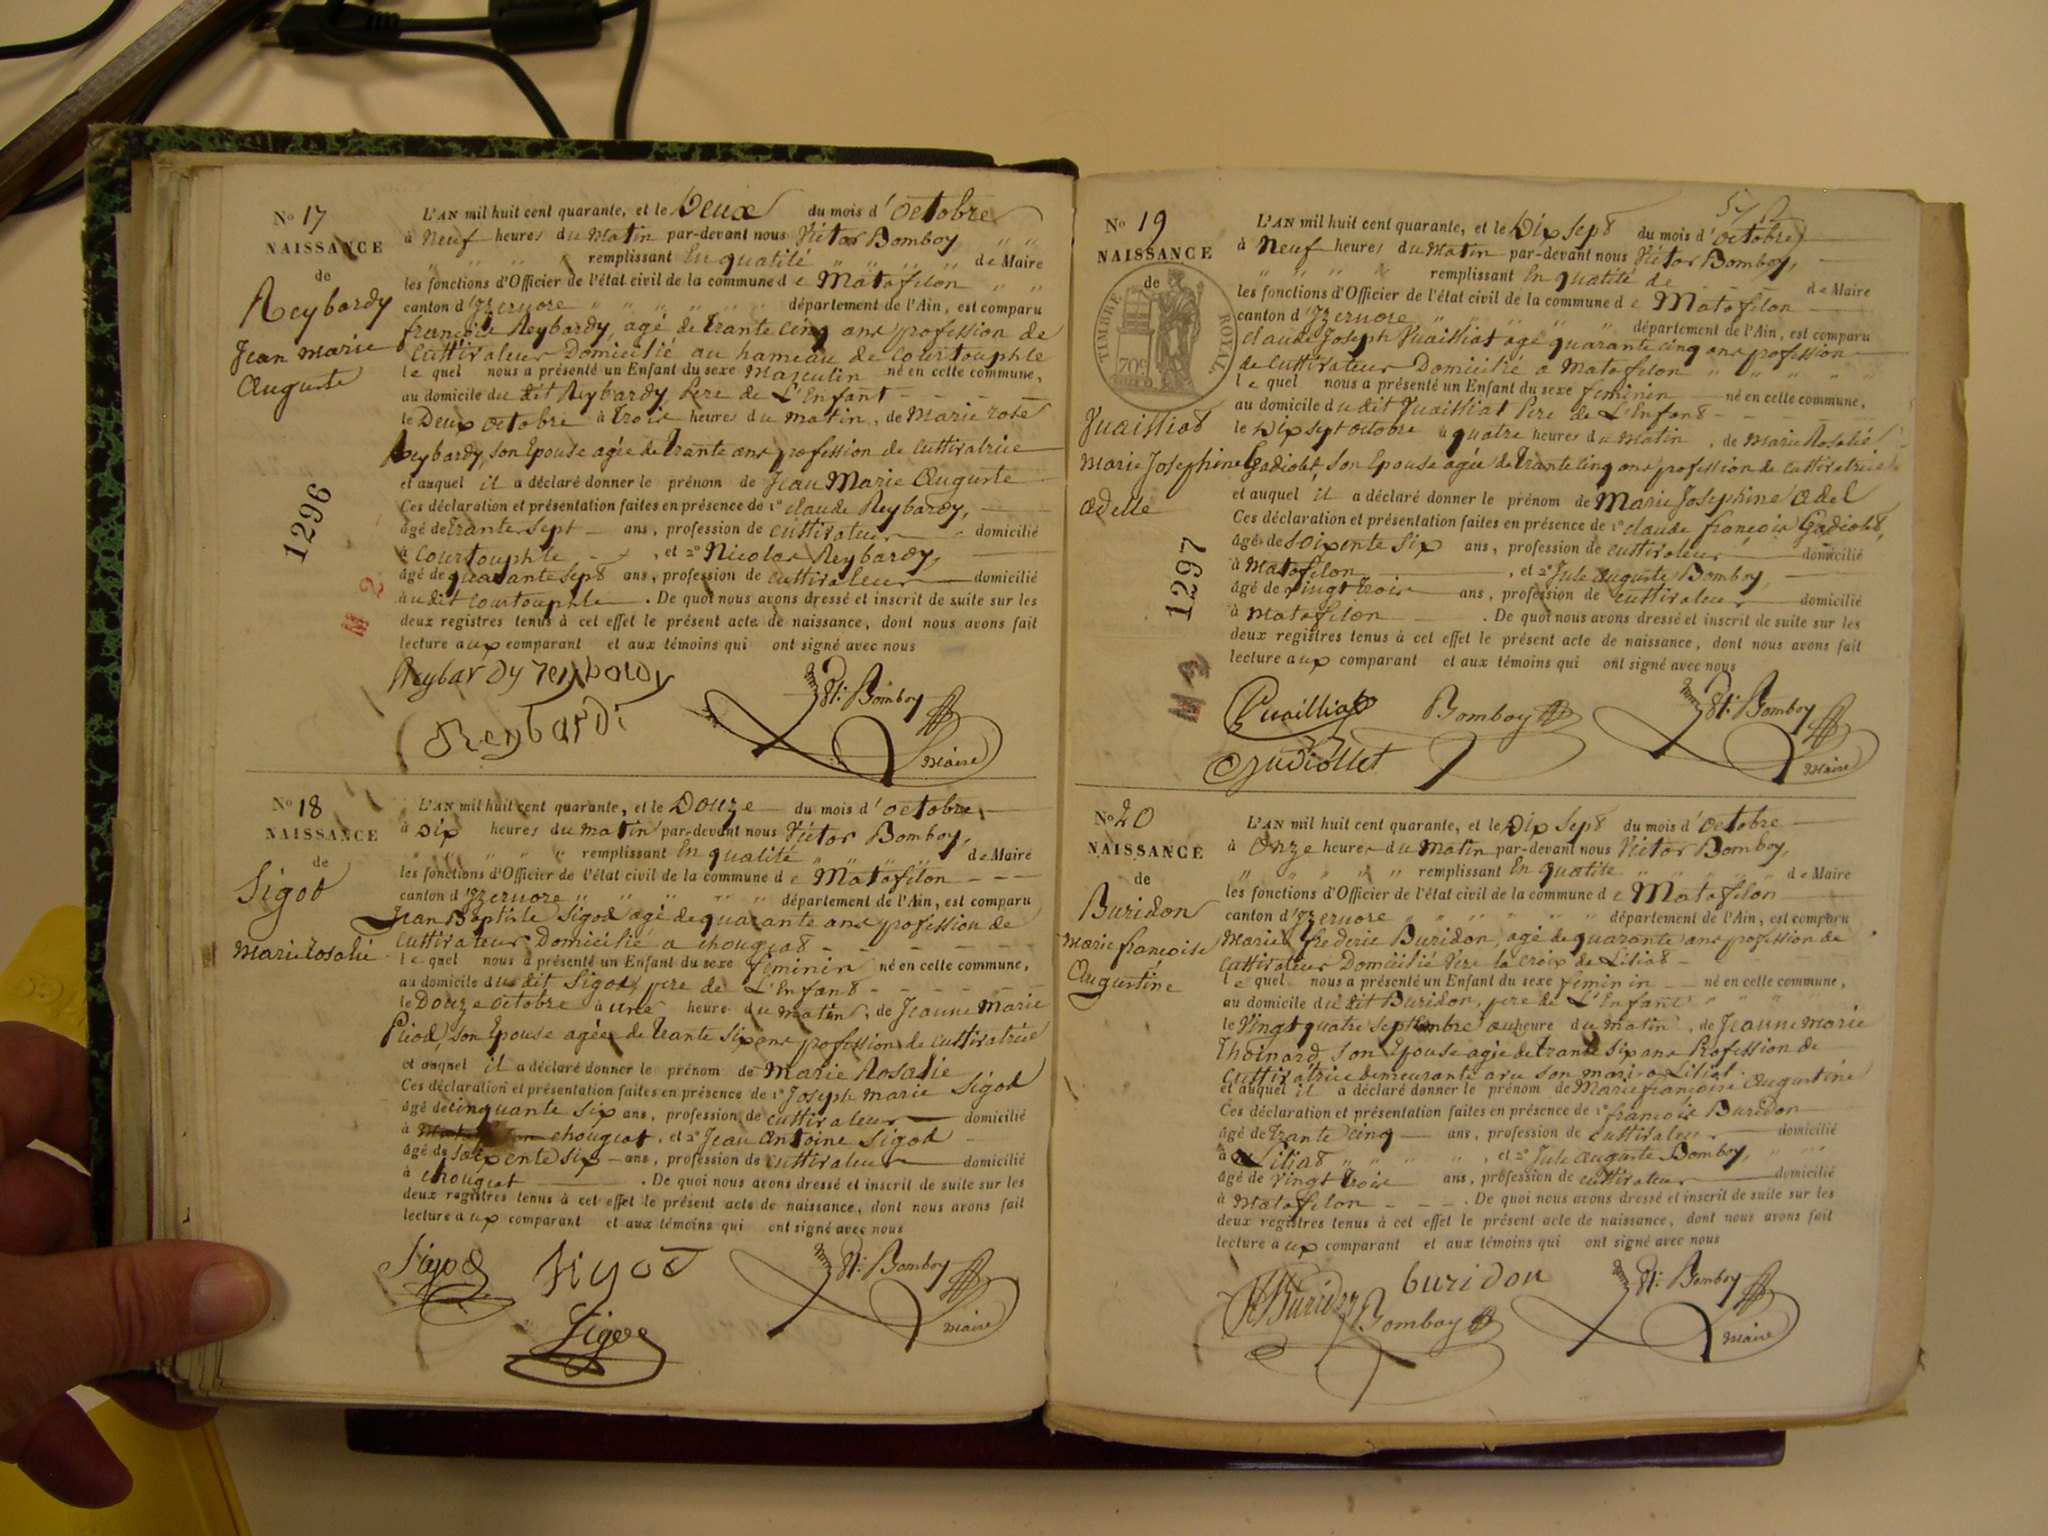 No 17
NAISSANCE
de
Reybardy
Jean Marie
Auguste
1296
M 2
L'AN mil huit cent quarante, et le Deux du mois d'octobre
à Neuf heures du Matin par-devant nous Victor Bomboy
remplissant En qualité de Maire
les fonctions d'Officier de l'état civil de la commune de Matafelon
canton d'Izernore département de l'Ain, est comparu
françois Reybardy, agé de trante cinq ans profession de
Cuttivateur Domicilié au hameau de Courtouphle
lequel nous a présenté un Enfant du sexe Masculin né en cette commune,
au domicile du dit Reybardy Pere de L'Enfant
le Deux octobre à trois heures du matin, de Marie rose
Reybardy, son Epouse agée de trante ans profession de cuttivatrice
et auquel il a déclaré donner le prénom de Jean Marie Auguste
Ces déclaration et présentation faites en présence de 1° claude Reybardy,
âgé de trante sept ans, profession de cuttivateur domicilié
à Courtouphle, et 2° Nicolas Reybardy,
âgé de quarante sept ans, profession de cuttivateur domicilié
à udit Courtouphle. De quoi nous avons dressé et inscrit de suite sur les
deux registres tenus à cet effet le présent acte de naissance, dont nous avons fait
lecture aux comparant et aux témoins qui ont signé avec nous
Reybardy reybardy
Vt: Bomboy
Reybardi
Maire
No 18
NAISSANCE
de
Sigod
Marie Rosalie
L'AN mil huit cent quarante, et le Douze du mois d'octobre,
à Dix heures du matin par-devant nous Victor Bomboy,
remplissant En qualité de Maire
les fonctions d'Officier de l'état civil de la commune de Matafelon
canton d'Izernore département de l'Ain, est comparu
Jean Baptiste Sigod agé de quarante ans profession de
Cuttivateur Domicilié a chougeat
lequel nous a présenté un Enfant du sexe féminin né en cette commune,
au domicile du dit Sigod, pere de L'Enfant
le Douze octobre à une heure du matin, de Jeanne Marie
Piod, son Epouse agée de trante six ans profession de cuttivatrice
et auquel il a déclaré donner le prénom de Marie Rosalie
Ces déclaration et présentation faites en présence de 1° Joseph marie Sigod
âgé de cinquante six ans, profession de cuttivateur domicilié
à chougeat, et 2° Jean Antoine Sigod
âgé de soixente six ans, profession de cuttivateur domicilié
à chougeat. De quoi nous avons dressé et inscrit de suite sur les
deux registres tenus à cet effet le présent acte de naissance, dont nous avons fait
lecture aux comparant et aux témoins qui ont signé avec nous
Sigod Sigod
Vt: Bomboy
Maire
Sigod
57
No 19
NAISSANCE
de
TIMBRE ROYAL
70c
Vuailliat
Marie Josephine
Adelle
1297
M 3
L'AN mil huit cent quarante, et le Dix sept du mois d'octobre
à Neuf heures du matin par-devant nous Victor Bomboy,
remplissant En qualité de de Maire
les fonctions d'Officier de l'état civil de la commune de Matafelon
canton d'Izernore département de l'Ain, est comparu
claude Joseph Vuailliat agé quarante cinq ans profession
de cuttivateur Domicilié a Matafelon
lequel nous a présenté un Enfant du sexe feminin né en cette commune,
au domicile du dit Vuailliat Pere de L'Enfant
le Dix sept octobre à quatre heures du Matin, de Marie Rosalie
Gadiolet, son Epouse agée de trante cinq ans profession de cuttivatrice
et auquel il a déclaré donner le prénom de Marie Josephine Adel
Ces déclaration et présentation faites en présence de 1° claude françois Gadiolet,
âgé de soixente six ans, profession de cuttivateur domicilié
à Matafelon, et 2° Jule Auguste Bomboy,
âgé de vingt trois ans, profession de cuttivateur domicilié
à Matafelon. De quoi nous avons dressé et inscrit de suite sur les
deux registres tenus à cet effet le présent acte de naissance, dont nous avons fait
lecture aux comparant et aux témoins qui ont signé avec nous
Vuailliat Bomboy Vt: Bomboy
Gudiollet
Maire
No 20
NAISSANCE
de
Buridon
Marie françoise
Augustine
L'AN mil huit cent quarante, et le Dix Sept du mois d'octobre
à Onze heures du Matin par-devant nous Victor Bomboy,
remplissant En qualité de Maire
les fonctions d'Officier de l'état civil de la commune de Matafelon
canton d'Izernore département de l'Ain, est comparu
Marie frederic Buridon, agé de quarante ans profession de
cuttivateur Domicilié Vers la croix de Liliat
lequel nous a présenté un Enfant du sexe feminin né en cette commune,
au domicile du dit Buridon, pere de L'Enfant
le Vingt quatre septembre heure du matin, de Jeanne Marie
Thoinard, son Epouse agée de trante six ans Profession de
cuttivatrice demeurante avec son mari a Liliat
et auquel il a déclaré donner le prénom de Marie françoise Augustine
Ces déclaration et présentation faites en présence de 1° françois Buridon
âgé de trante cinq ans, profession de cuttivateur domicilié
à Liliat, et 2° Jule Auguste Bomboy,
âgé de vingt trois ans, profession de cuttivateur domicilié
à Matafelon. De quoi nous avons dressé et inscrit de suite sur les
deux registres tenus à cet effet le présent acte de naissance, dont nous avons fait
lecture aux comparant et aux témoins qui ont signé avec nous
Buridon buridon Vt: Bomboy
Bomboy
Maire